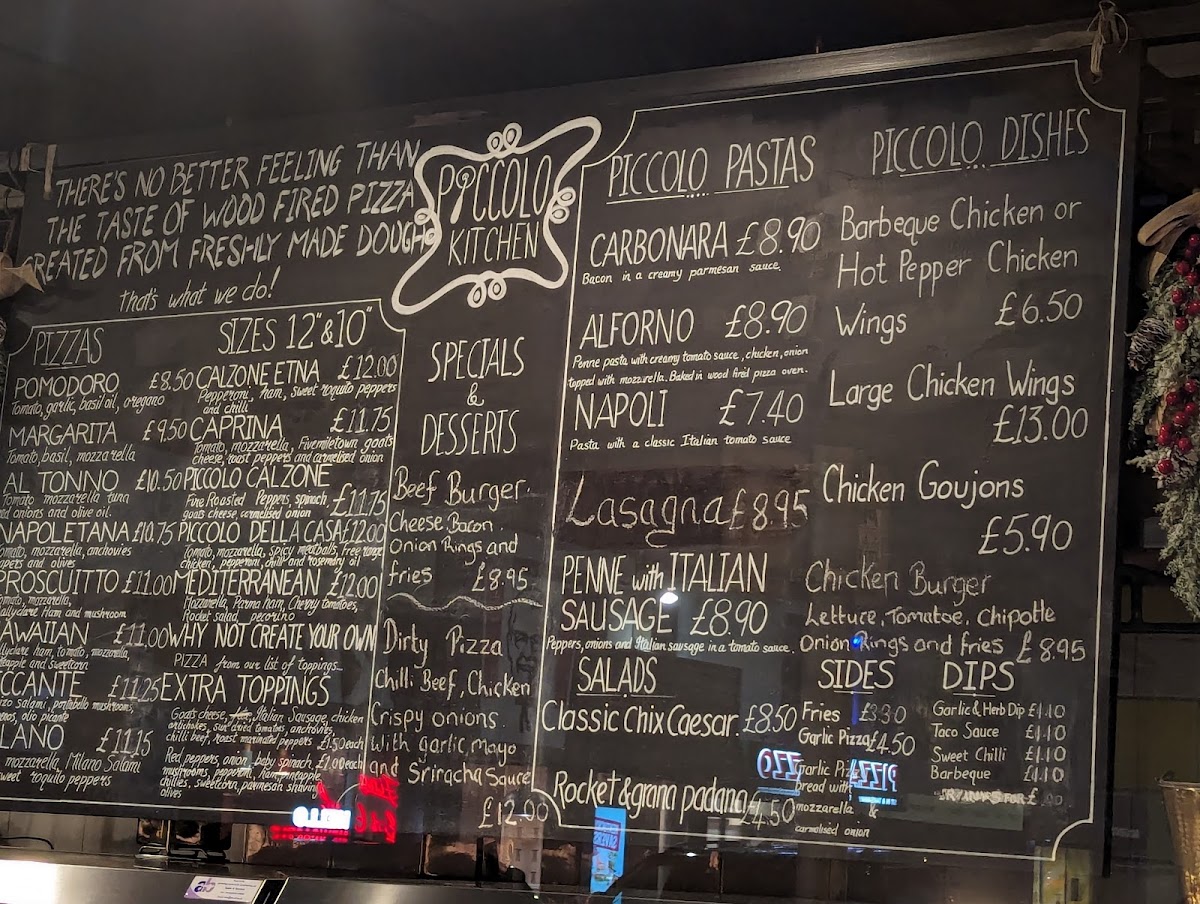 THERE'S NO BETTER FEELING THAN
THE TASTE OF WOOD FIRED PIZZA
CREATED FROM FRESHLY MADE DOUGH
that's what we do!
PICCOLO
KITCHEN
PIZZAS
SIZES 12" & 10"
POMODORO £8.50
Tomato, garlic, basil oil, oregano
MARGARITA £9.50
Tomato, basil, mozzarella
AL TONNO £10.50
Tomato mozzarella tuna
and onions and olive oil.
NAPOLETANA £10.75
Tomato, mozzarella, anchovies
capers and olives
PROSCUITTO £11.00
Tomato, mozzarella,
Ballyclare Ham and mushroom
AWAIIAN £11.00
llyclare ham, tomato, mozzarella,
neapple and sweetcorn
CCANTE £11.25
zo salami, portobello mushrooms,
olio picante
LANO £11.75
mozzarella, Milano Salami
sweet roquito peppers
CALZONE ETNA £12.00
Pepperoni, ham, sweet roquito peppers
and chilli
CAPRINA £11.75
Tomato, mozzarella, Fivemiletown goats
cheese, roast peppers and carmelised onion
PICCOLO CALZONE
Fire Roasted Peppers, spinach £11.75
goats cheese, carmelised onion
PICCOLO DELLA CASA £12.00
Tomato, mozzarella, spicy meatballs, free range
chicken, pepperoni, chilli and rosemary oil
MEDITERRANEAN £12.00
Mozzarella, Parma ham, Cherry tomatoes,
Rocket salad, pecorino
WHY NOT CREATE YOUR OWN
PIZZA from our list of toppings...
EXTRA TOPPINGS
Goats cheese, Italian Sausage, chicken
artichokes, sun dried tomatoes, anchovies,
chilli beef, roast marinated peppers £1.50 each
Red peppers, onion, baby spinach, £1.00 each
mushrooms, pepperoni, Ham, pineapple
chillies, sweetcorn, parmesan shaving
olives
SPECIALS
&
DESSERTS
Beef Burger.
Cheese, Bacon.
Onion Rings and
fries £8.95
Dirty Pizza
Chilli Beef, Chicken
Crispy onions.
with garlic, mayo
and Sriracha Sauce
£12.00
PICCOLO PASTAS
CARBONARA £8.90
Bacon in a creamy parmesan sauce.
ALFORNO £8.90
Penne pasta with creamy tomato sauce, chicken, onion
topped with mozzarella. Baked in wood fired pizza oven.
NAPOLI £7.40
Pasta with a classic Italian tomato sauce
Lasagna £8.95
PENNE with ITALIAN
SAUSAGE £8.90
Peppers, onions and Italian sausage in a tomato sauce.
SALADS
Classic Chix Caesar. £8.50
Rocket & grana padana £4.50
PICCOLO DISHES
Barbeque Chicken or
Hot Pepper Chicken
Wings £6.50
Large Chicken Wings
£13.00
Chicken Goujons
£5.90
Chicken Burger
Lettuce, Tomatoe, Chipotle
Onion Rings and fries £8.95
SIDES
Fries £3.30
Garlic Pizza £4.50
Garlic Pizza
bread with
mozzarella &
carmalised onion
DIPS
Garlic & Herb Dip £1.10
Taco Sauce £1.10
Sweet Chilli £1.10
Barbeque £1.10